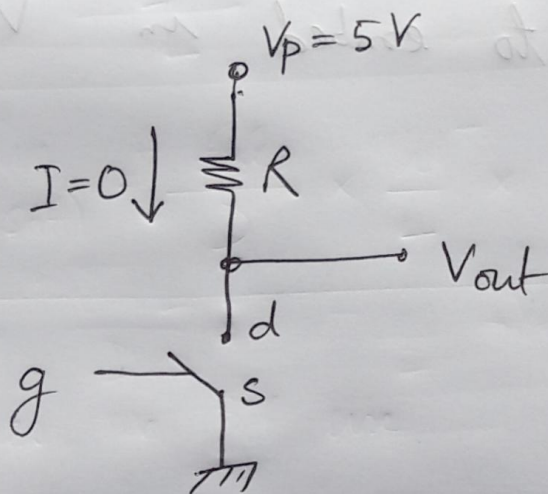 Vp = 5 V
I=0
R
Vout
d
g
s